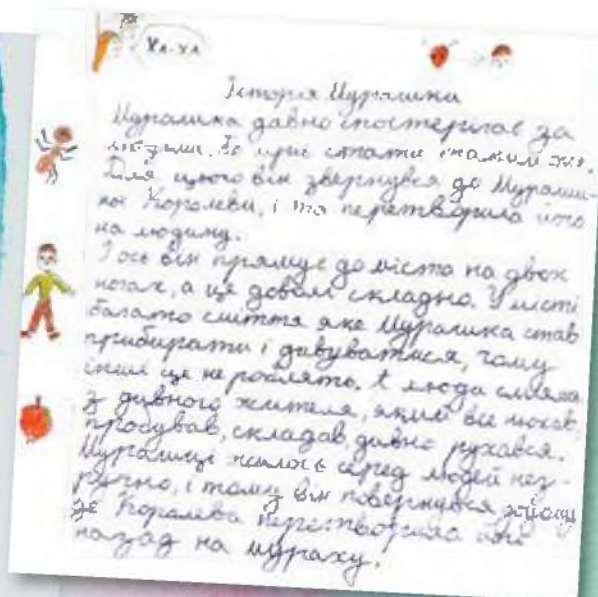 Ха-ха
Історія Мурашки
Мурашка давно спостерігає за
людьми. Це мріє стати таким же.
Для цього він звернувся до Мураши-
ної Королеви, і та перетворила його
на людину.
І ось він прямує до міста на двох
ногах, а це доволі складно. У місті
багато сміття яке Мурашка став
прибирати і дивуватися, чому
інші це не роблять. А люди
з дивного жителя, який все нюхав,
пробував, складав, дивно рухався.
Мурашці жилось серед людей нез-
ручно, і тому він повернувся
де Королева перетворила його
назад на мураху.